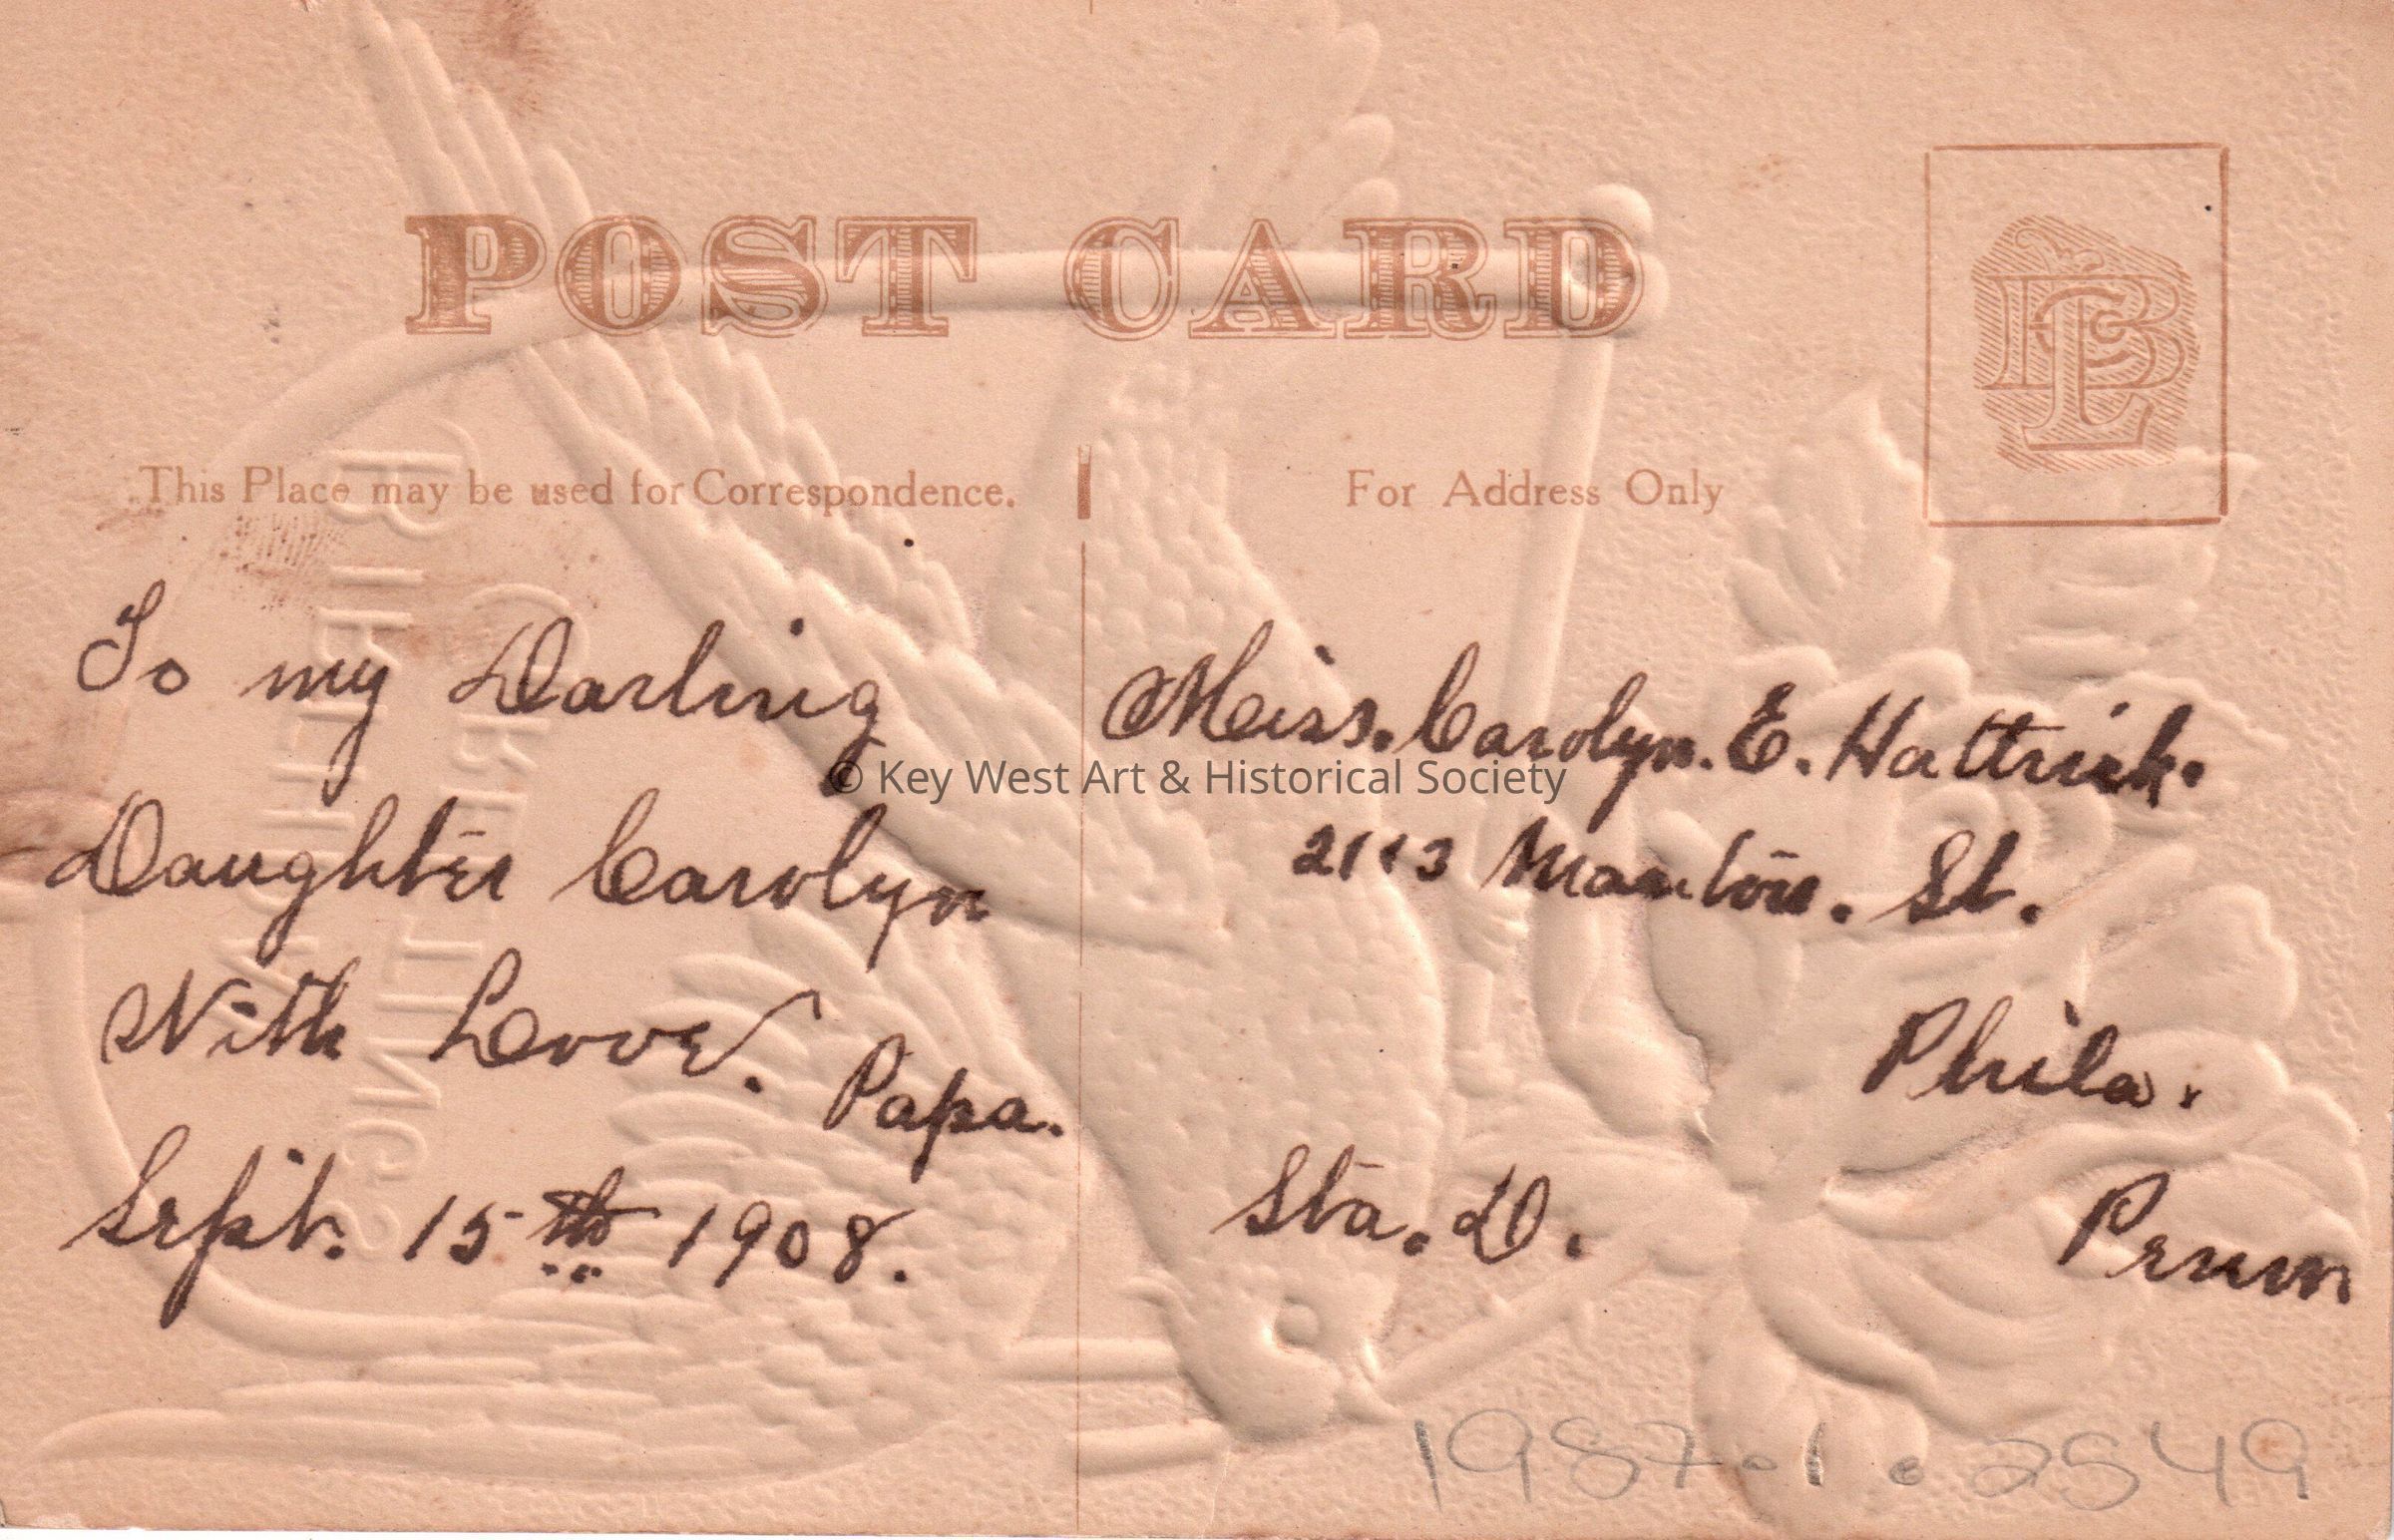 POST CARD
This Place may be used for Correspondence.
For Address Only
To my Darling
Daughter Carolyn
With Love.
Papa.
Sept. 15th 1908.
Miss. Carolyn. E. Hattrick.
2113 Manton. St.
Phila.
Sta. D.
Penn
© Key West Art & Historical Society
BIRTHDAY
GREETINGS
1987.1.2549